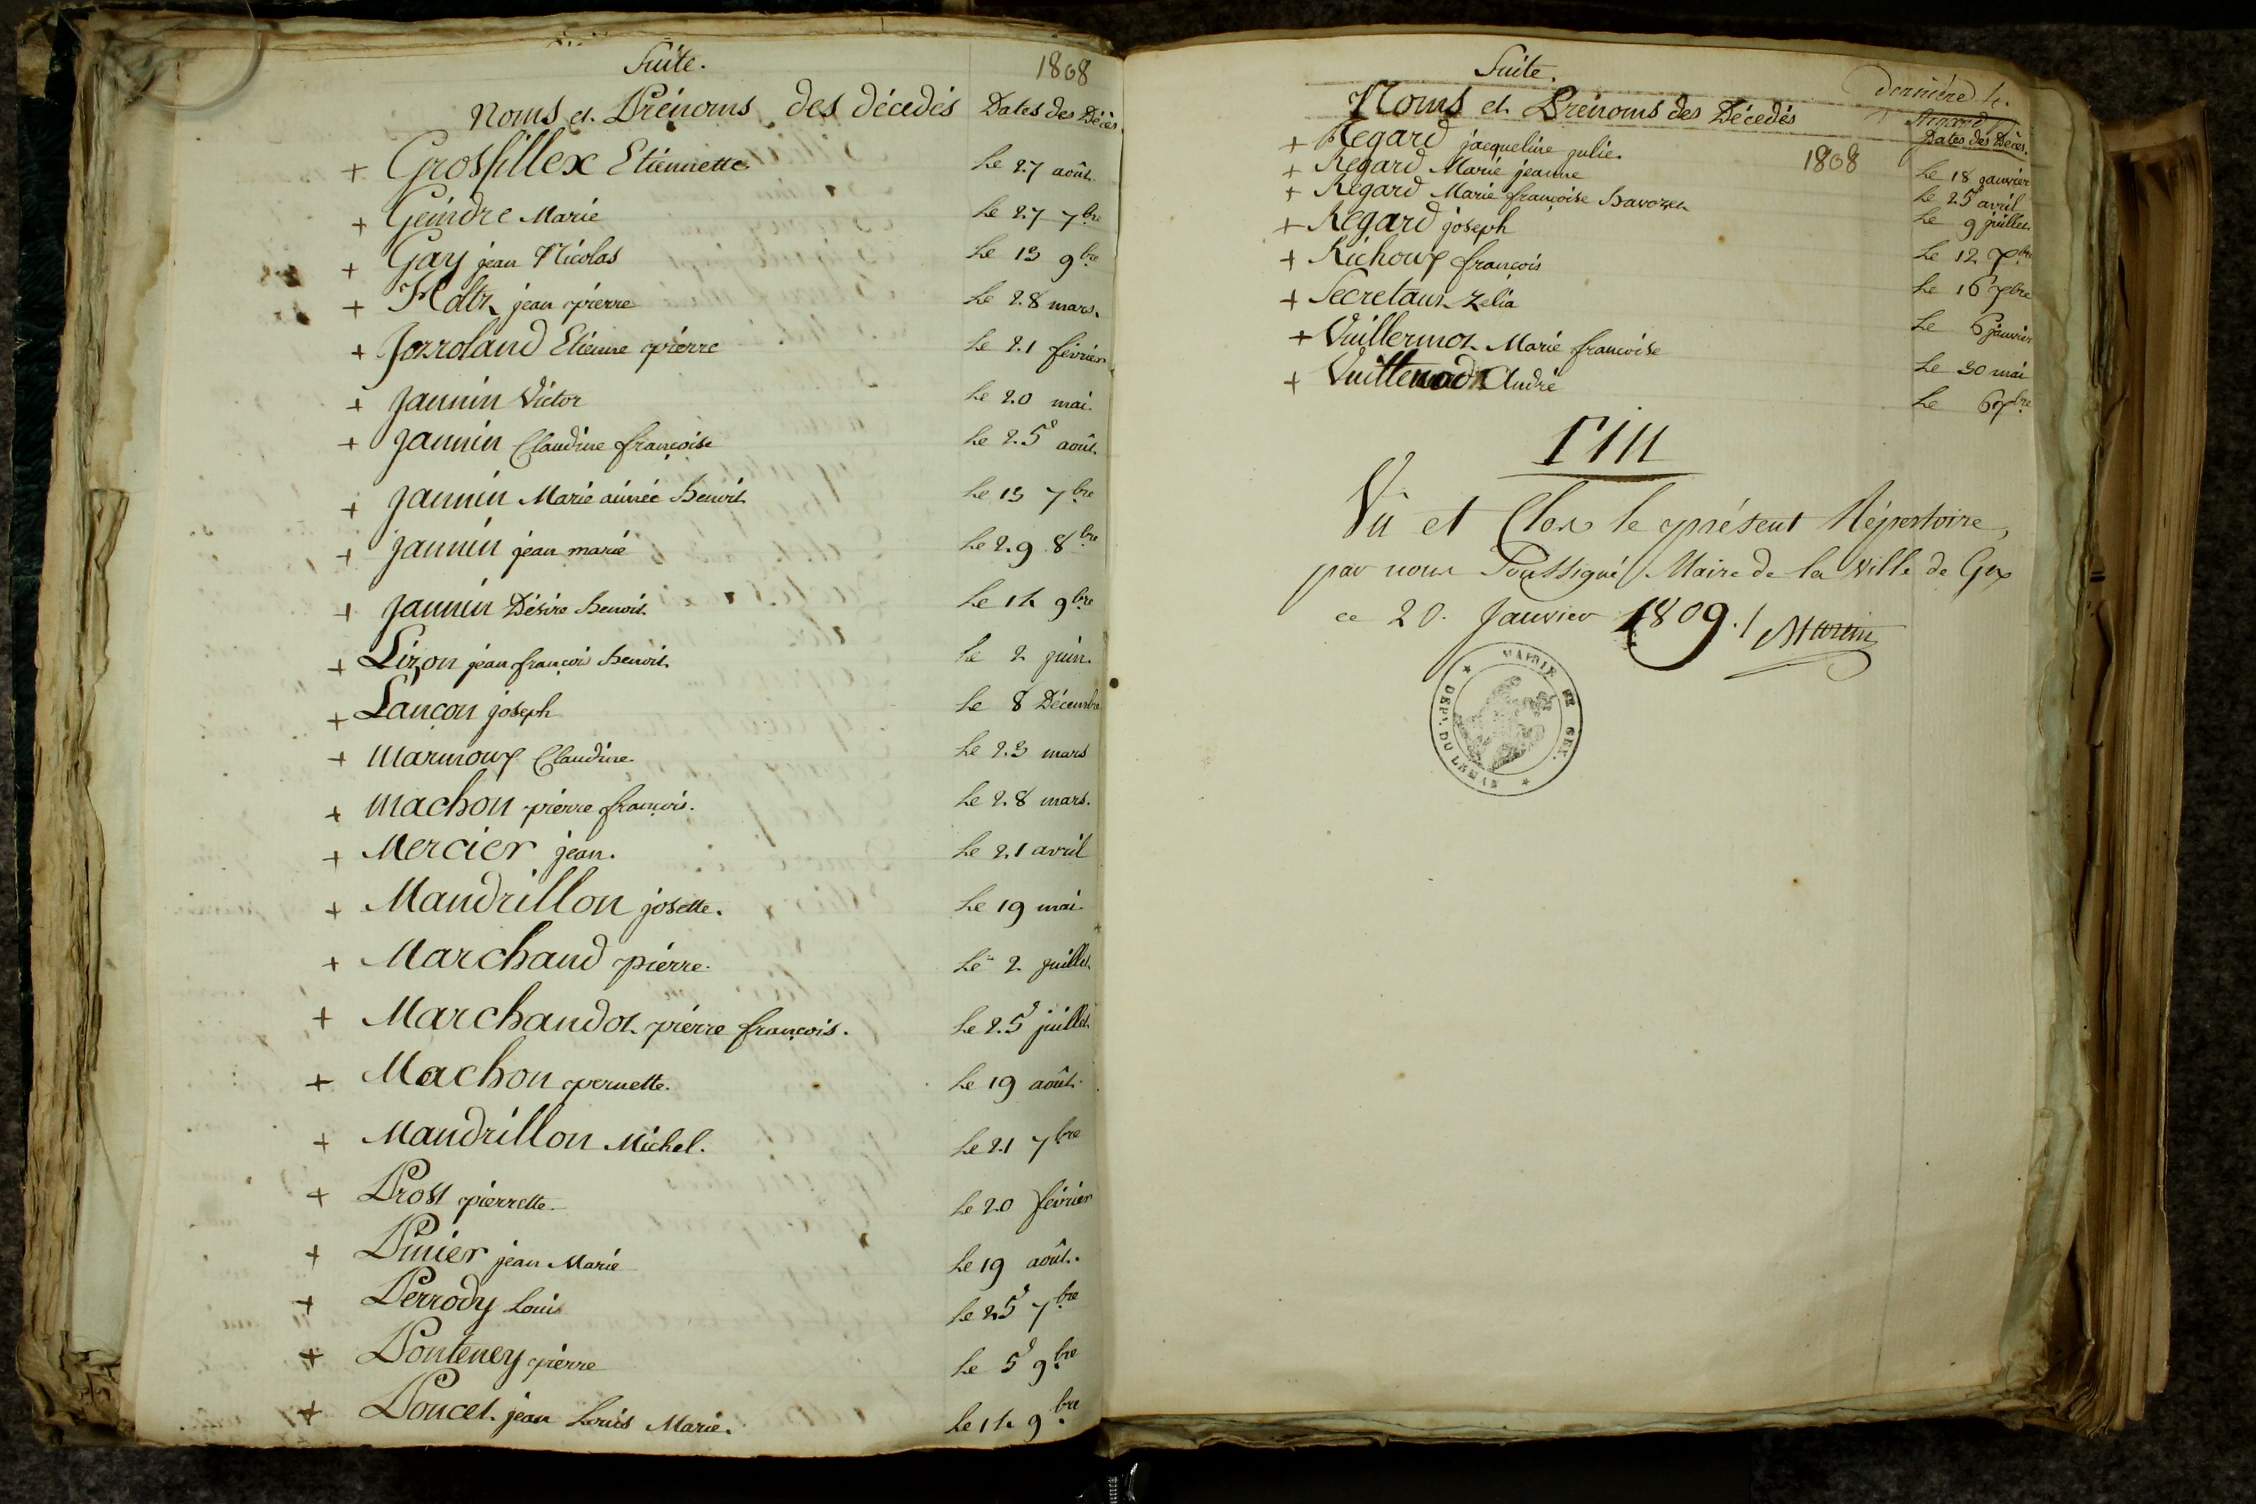 Suite.
1808
Noms et Prénoms des décedés Dates des Décès
+ Grosfillex Etiennette Le 27 août
+ Geindre Marie Le 27 7bre
+ Gay jean Nicolas Le 13 9bre
+ jean pierre Le 28 mars.
+ Jorroland Etienne pierre Le 21 février
+ Jannin Victor Le 20 mai.
+ Jannin Claudine françoise Le 25 août.
+ Jannin Marie aimée benoit Le 13 7bre
+ Jannin jean marie Le 29 8bre
+ Jannin Désiré benoit Le 14 9bre
+ Lizon jean françois benoit Le 2 juin.
+ Lançon joseph Le 8 Décembre
+ Marmoux Claudine. Le 23 mars
+ Machon pierre françois. Le 28 mars.
+ Mercier jean. Le 21 avril
+ Mandrillon josette. Le 19 mai.
+ Marchand pierre. Le 2 juillet
+ Marchandot pierre françois. Le 25 juillet
+ Machon pernette. Le 19 août.
+ Mandrillon Michel. Le 21 7bre
+ Prost pierrette. Le 20 février
+ Punier jean Marie Le 19 août.
+ Perrody Louis Le 25 7bre
+ Ponteney pierre Le 5 9bre
+ Poncet jean Louis Marie. Le 14 9bre
Suite.
dernière
Noms et Prénoms des Décedés
Dates des Décès.
1808
+ Regard jacqueline julie. Le 18 janvier
+ Regard Marie jeanne Le 25 avril
+ Regard Marie françoise Le 9 juillet
+ Regard joseph Le 12 7bre
+ Richoux françois Le 16 7bre
+ Secretan Zelia Le 6 janvier
+ Vuillermoz Marie francoise Le 30 mai
+ André Le 6 7bre
Fin
Vû et Clos le présent Répertoire,
par nous Soussigné Maire de la Ville de Gex
ce 20. Janvier 1809./.
MAIRIE DE GEX.
DEPT. DU LEMAN